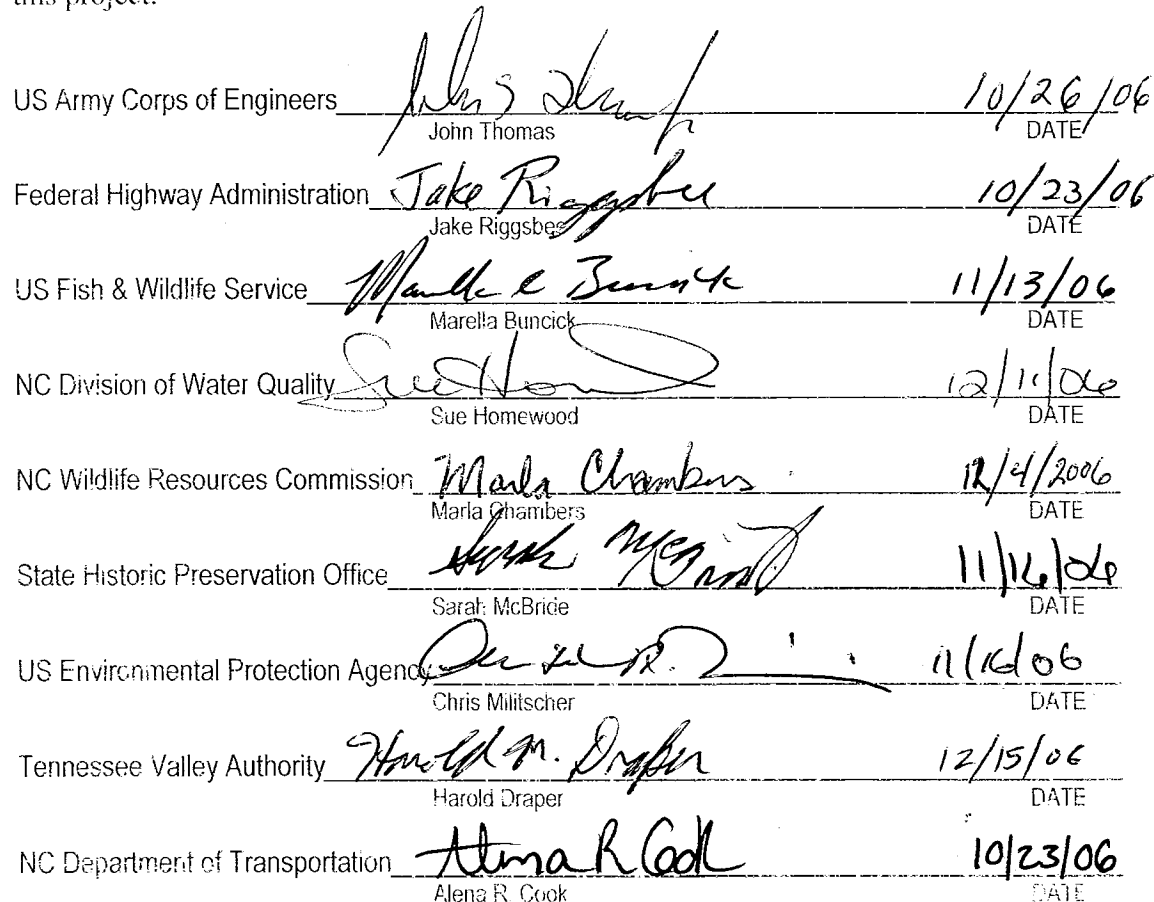 this project.
US Army Corps of Engineers John S Thomas Jr 10/26/06
John Thomas DATE
Federal Highway Administration Jake Riggsbee 10/23/06
Jake Riggsbee DATE
US Fish & Wildlife Service Marella C Buncick 11/13/06
Marella Buncick DATE
NC Division of Water Quality Sue Homewood 12/11/06
Sue Homewood DATE
NC Wildlife Resources Commission Marla Chambers 12/4/2006
Marla Chambers DATE
State Historic Preservation Office Sarah McBride 11/16/06
Sarah McBride DATE
US Environmental Protection Agency 11/16/06
Chris Militscher DATE
Tennessee Valley Authority Harold M. Draper 12/15/06
Harold Draper DATE
NC Department of Transportation Alena R Cook 10/23/06
Alena R. Cook DATE